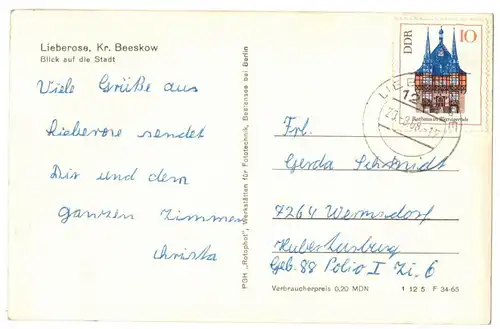 Lieberose, Kr. Beeskow
Blick auf die Stadt
Viele Grüße aus
Lieberose sendet
Dir und dem
ganzen Zimmer
Christa
PGH „Rotophot", Werkstätten für Fototechnik, Bestensee bei Berlin
DDR
10
Rathaus in Wernigerode
Frl.
Gerda Schmidt
7264 Wermsdorf
Hubertusburg
Geb. 88 Polio I Zi. 6
Verbraucherpreis 0,20 MDN
1 12 5 F 34-65